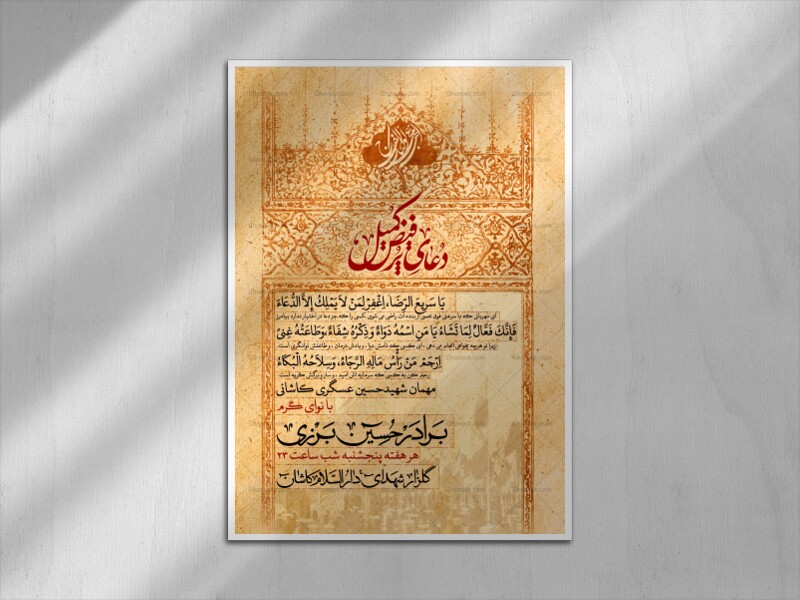 دعای پرفیض کمیل
یَا سَرِیعَ الرِّضَا، اِغْفِرْ لِمَنْ لاَ یَمْلِكُ إِلاَّ الدُّعَاءَ
فَإِنَّكَ فَعَّالٌ لِمَا تَشَاءُ یَا مَنِ اسْمُهُ دَوَاءٌ وَ ذِكْرُهُ شِفَاءٌ، وَطَاعَتُهُ غِنىً
اِرْحَمْ مَنْ رَأْسُ مَالِهِ الرَّجَاءُ، وَسِلاَحُهُ الْبُكَاءُ
مهمان شهیدحسین عسگری کاشانی
با نوای گرم
برادر حسین برزی
هر هفته پنجشنبه شب ساعت ۲۳
گلزار شهدای دارالسلام کاشان